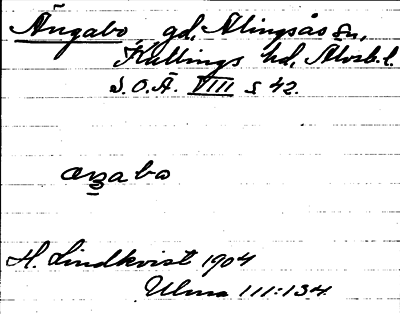 Ängabo gd, Alingsås sn,
Kullings hd, Älvsb. l.
S. O. Ä. VIII s 42.
aŋabo
H. Lindkvist 1904
Ulma 111:134.